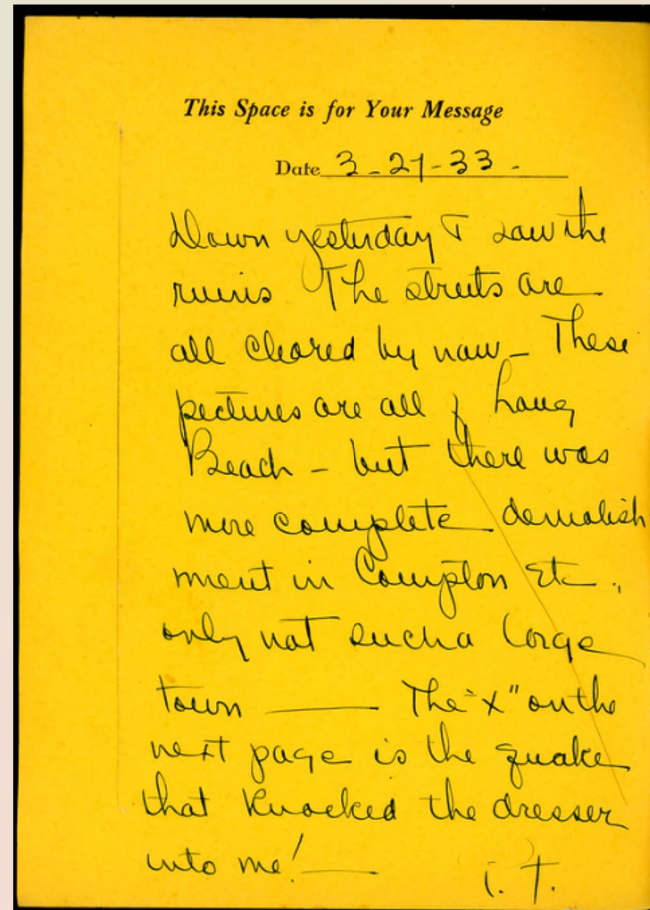 This Space is for Your Message
Date 3-27-33-
Down yesterday & saw the
ruins The streets are
all cleared by now - These
pictures are all of Long
Beach - but there was
more complete demolish
ment in Compton Etc.,
only not such a large
town — The "x" on the
next page is the quake
that knocked the dresser
into me! —
C. T.